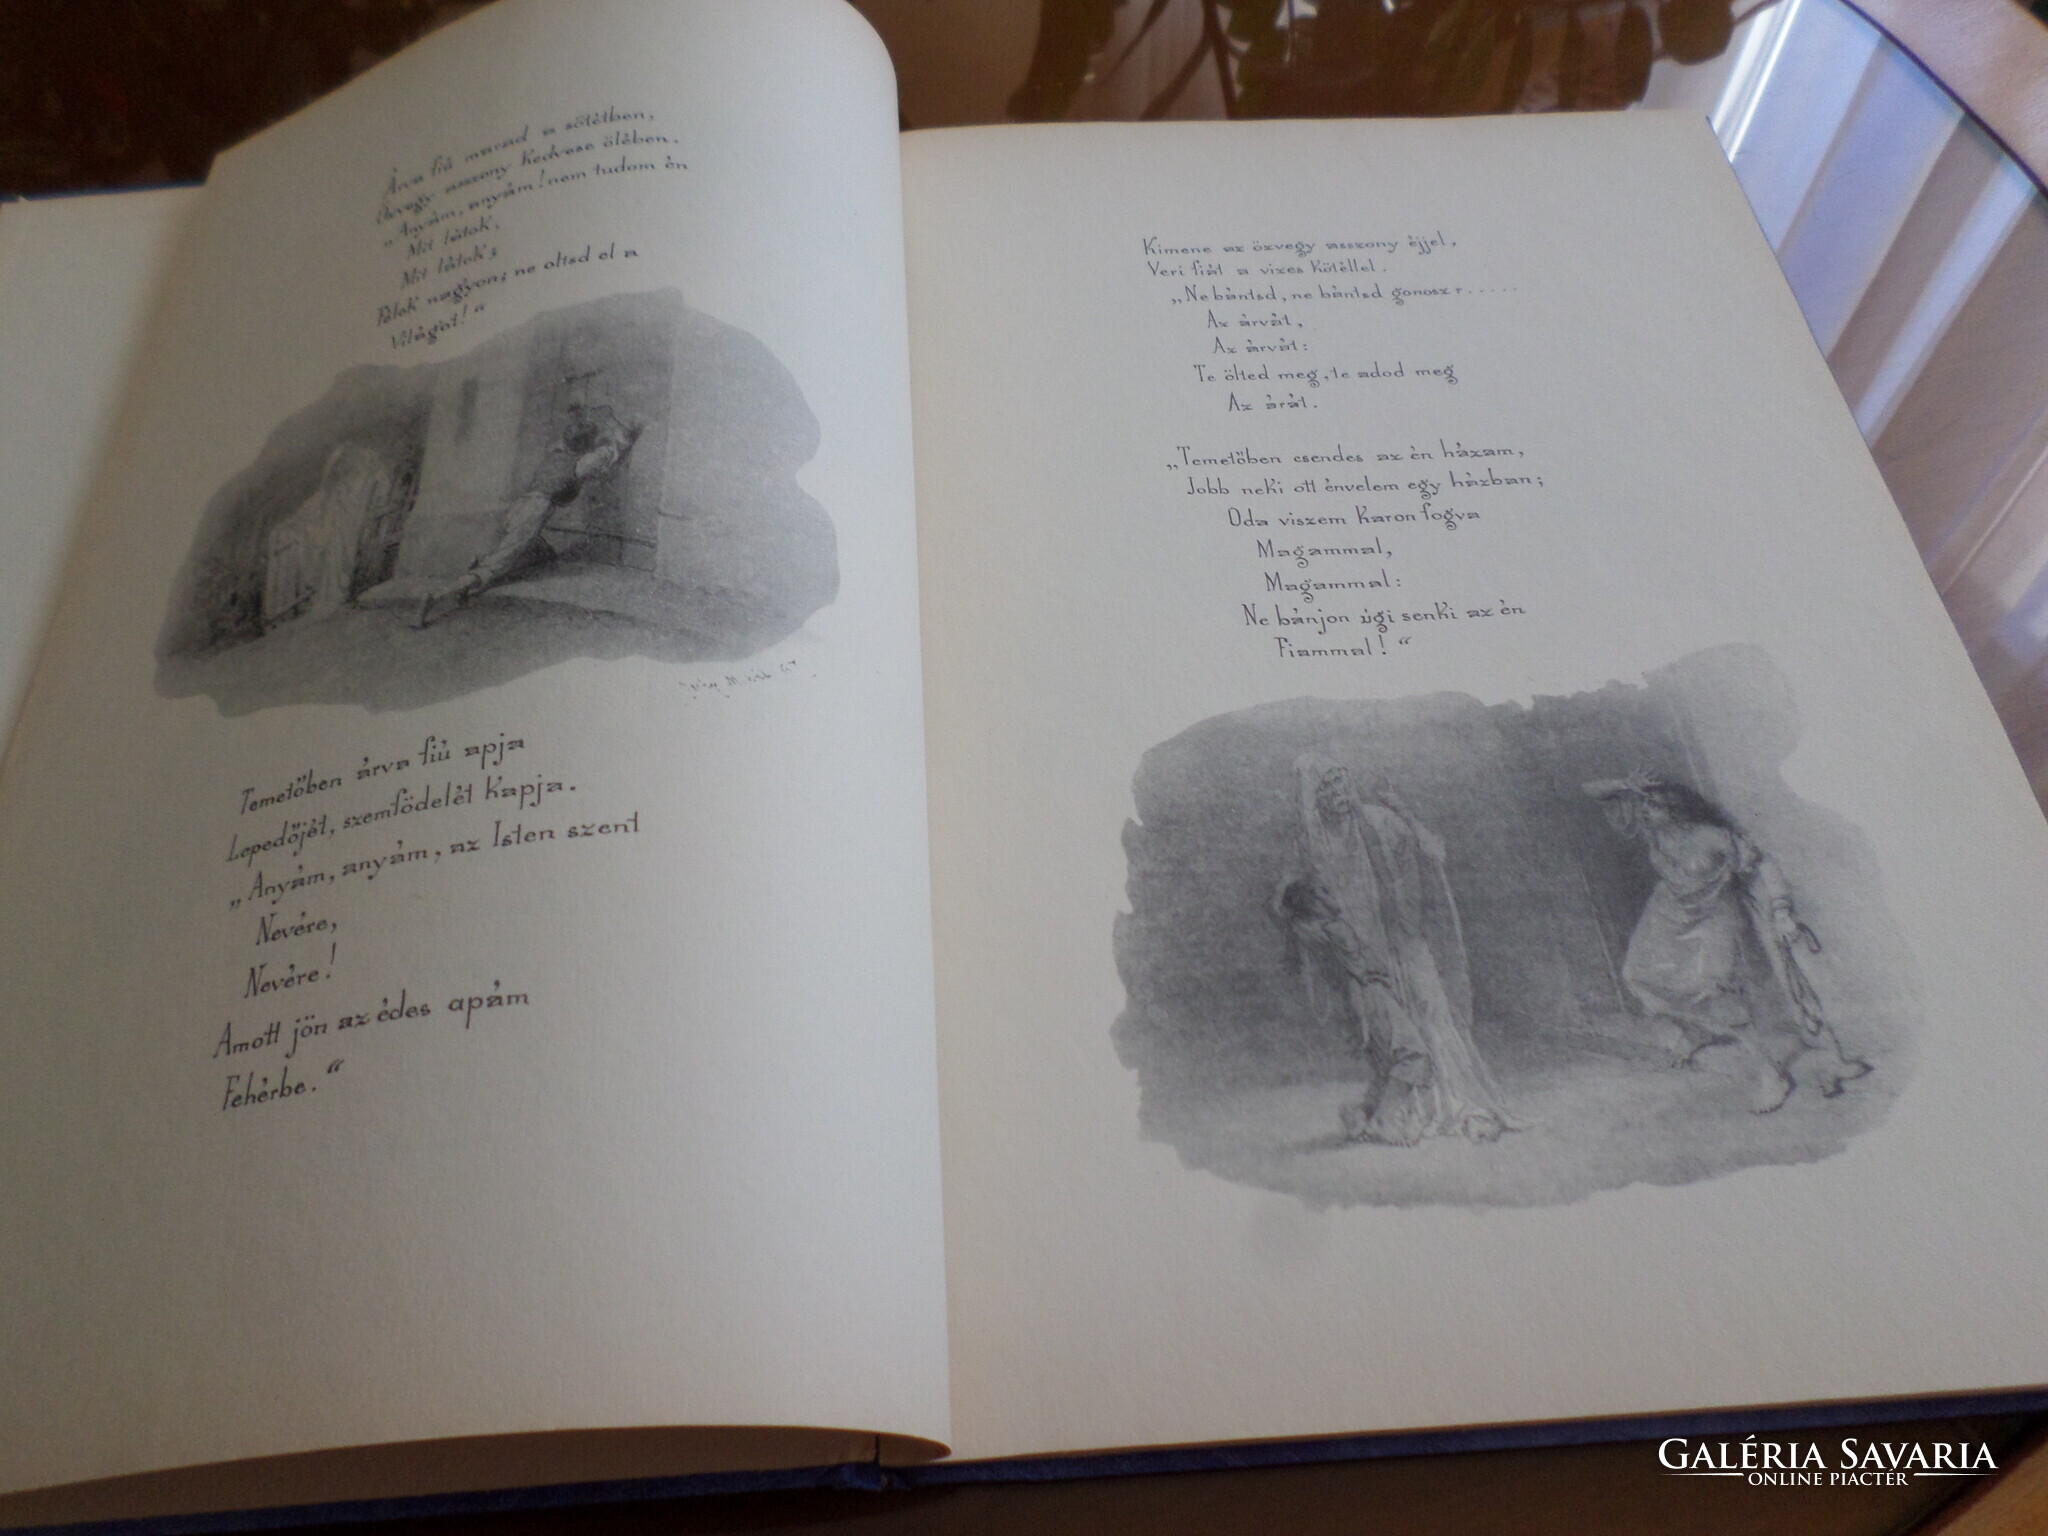 Árva fiú marad a sötétben,
Özvegy asszony kedvese ölében.
„Anyám, anyám! nem tudom én
Mit látok,
Mit látok;
Félek nagyon; ne oltsd el a
Világot!“
Temetőben árva fiú apja
Lepedőjét, szemfödelét kapja.
„Anyám, anyám, az Isten szent
Nevére,
Nevére!
Amott jön az édes apám
Fehérbe.“
Kimene az özvegy asszony éjjel,
Veri fiát a vizes kötéllel.
„Ne bántsd, ne bántsd gonosz r.....
Az árvát,
Az árvát:
Te ölted meg, te adod meg
Az árát.
„Temetőben csendes az én házam,
Jobb neki ott énvelem egy házban;
Oda viszem karon fogva
Magammal,
Magammal:
Ne bánjon úgi senki az én
Fiammal!“
GALÉRIA SAVARIA
ONLINE PIACTÉR